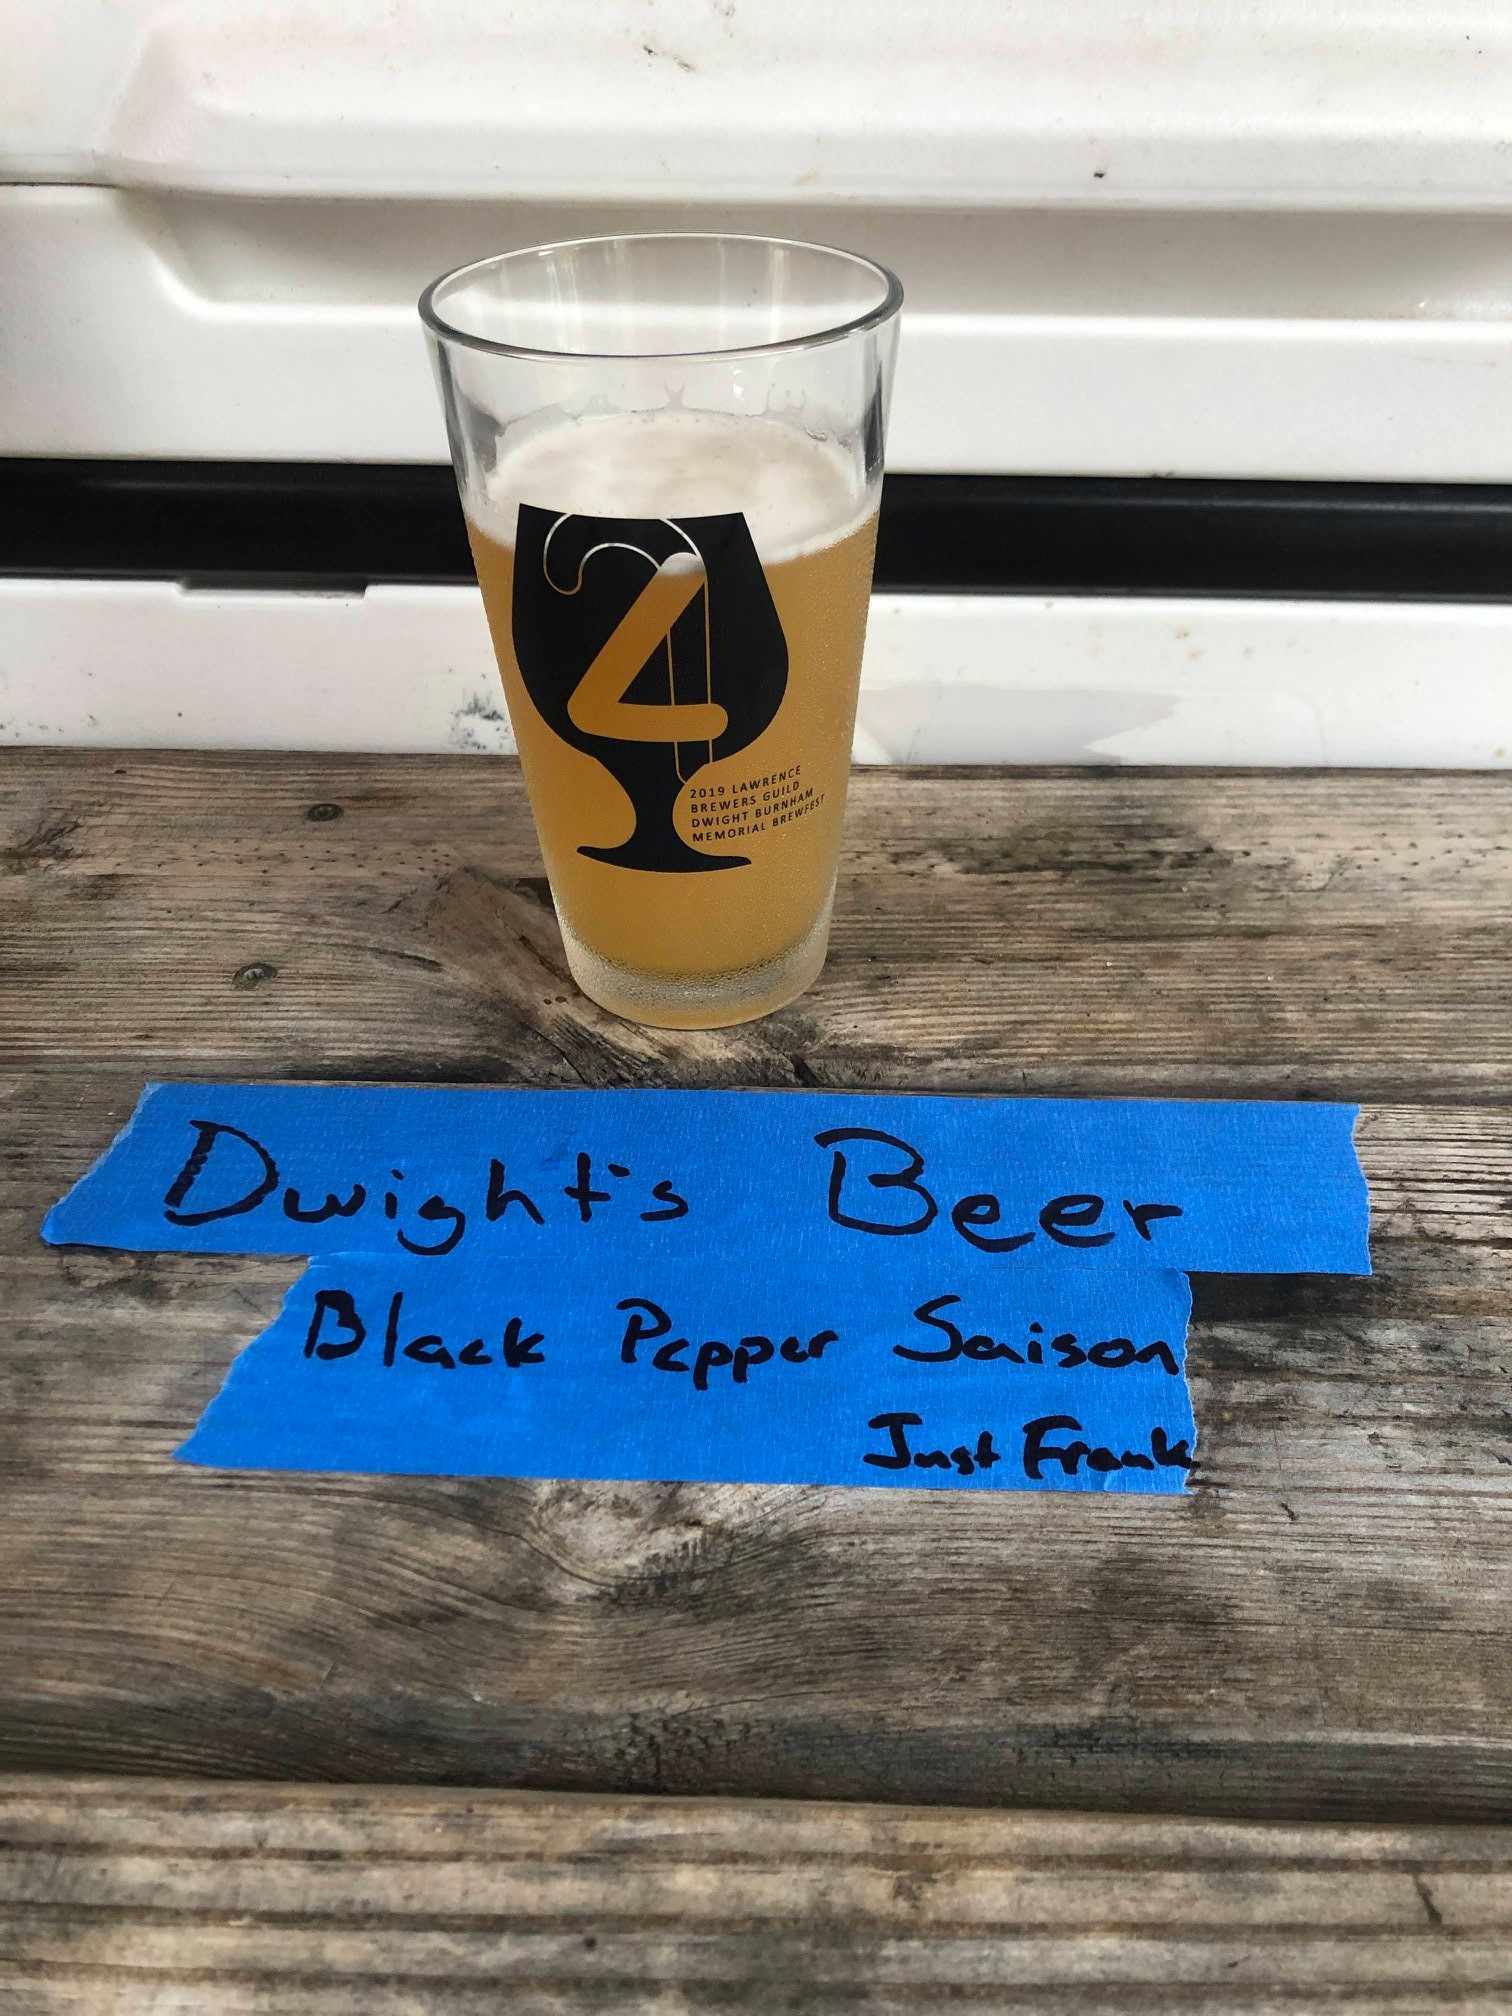 24
2019 LAWRENCE
BREWERS GUILD
DWIGHT BURNHAM
MEMORIAL BREWFEST
Dwight's Beer
Black Pepper Saison
Just Frank